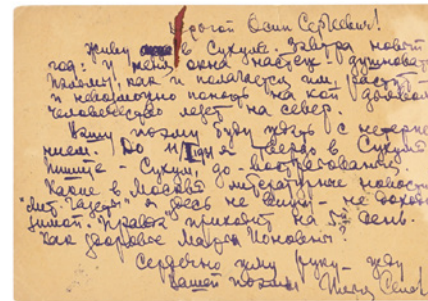 Дорогой Осип Сергеевич!
Живу в Сухуме. Завтра новый
год: и меня окна настежь. Душновато.
Пальмы, как и полагается им, растут
и невозможно понять на кой дьявол
человечество лезет на север.
Вашу поэму буду ждать с нетерпе-
нием. До 11/I я твердо в Сухуме
пишите - Сухум, до-востребования.
Какие в Москве литературные новости
"Лит. Газеты" я здесь не вижу - не доходит
зимой. Правда приходит на 5й день.
Как здоровье Марии Ионовны?
Сердечно жму руку - жду
Вашей поэмы